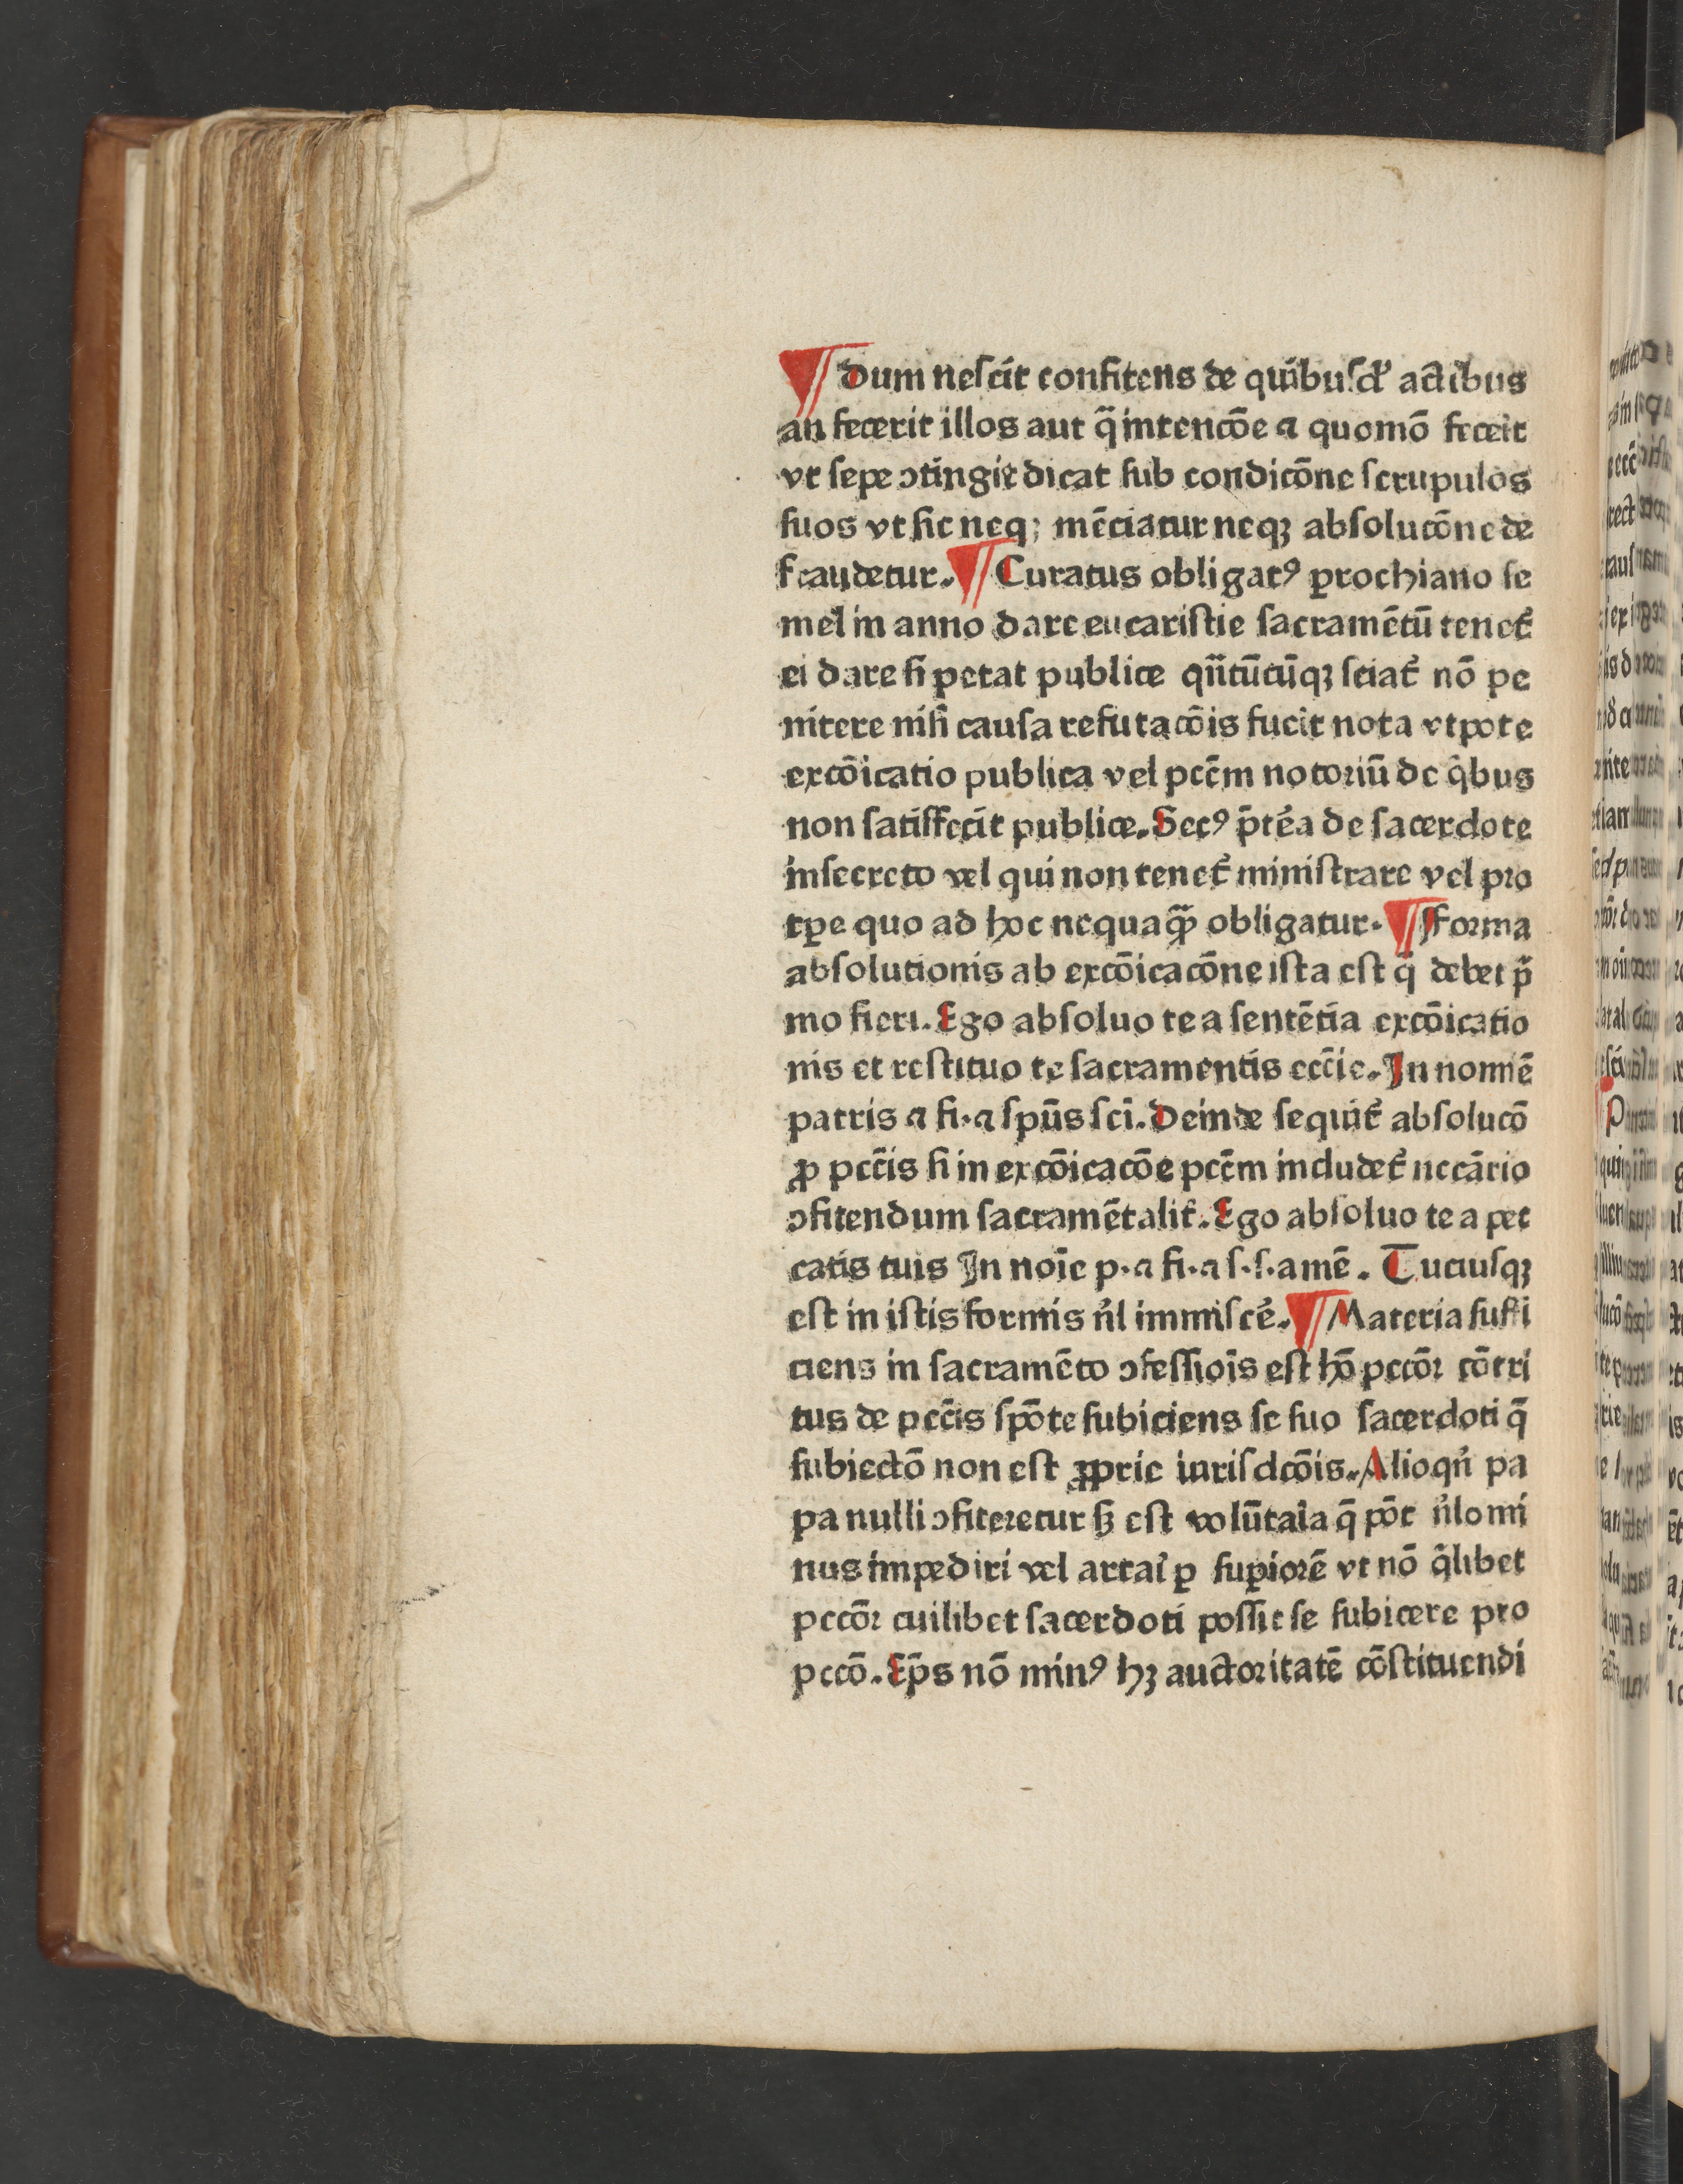 ¶ Dum neſcit confitens de quibuſdꝰ actibus
an fecerit illos aut q̄ intencōe ⁊ quomō feceīt
vt ſepe ↄtingit dicat ſub condicōne ſcrupulos
ſuos vt ſic neqꝫ mēciatur neqꝫ abſolucōne de
fraudetur. ¶ Curatus obligatꝰ ꝑrochiano ſe
mel in anno dare eucariſtie ſacramētū tenet᷑
ei dare ſi petat publice qn̄tūcūqꝫ ſciat᷑ nō pe
nitere niſi cauſa refutacōis fuerit nota vtpote
excōicatio publica vel pcc̄m notoriū de q̇bus
non ſatiſfecit publice. Secꝰ p̄tea de ſacerdote
inſecreto vel qui non tenet᷑ miniſtrare vel pro
tꝑe quo ad hoc nequaqͣꝫ obligatur. ¶ Forma
abſolutionis ab excōicacōne iſta eſt q̄ debet p̄
mo fieri. Ego abſoluo te a ſentētia excōicatio
nis et reſtituo te ſacramentis ecc̄ie. In nomīe
patris ⁊ fi. ⁊ ſpūs ſci̅. Deinde ſequit᷑ abſolucō
ꝓ pcc̄is ſi in excōicacōe pcc̄m includet᷑ neccārio
ↄfitendum ſacramētalit᷑. Ego abſoluo te a pec
catis tuis In noīe p. ⁊ fi. ⁊ ſ. ſ. amē. Tuciuſqꝫ
eſt in iſtis formis n̄l immiſcē. ¶ Materia ſuffi
ciens in ſacramēto ↄfeſſiōis eſt hō pccōr cōtri
tus de pcc̄is ſpōte ſubiciens ſe ſuo ſacerdoti q̄
ſubiectō non eſt ꝓprie iuriſdcōis. Alioqn̄ pa
pa nulli ↄfiteretur ſꝫ eſt volūtaīa q̄ pōt n̄lo mi
nus impediri vel artai᷑ ꝑ ſuꝑiorē vt nō q̇libet
pccōr cuilibet ſacerdoti poſſit ſe ſubicere pro
pccō. Ep̄s nō minꝰ hꝫ auctoritatē cōſtituendi